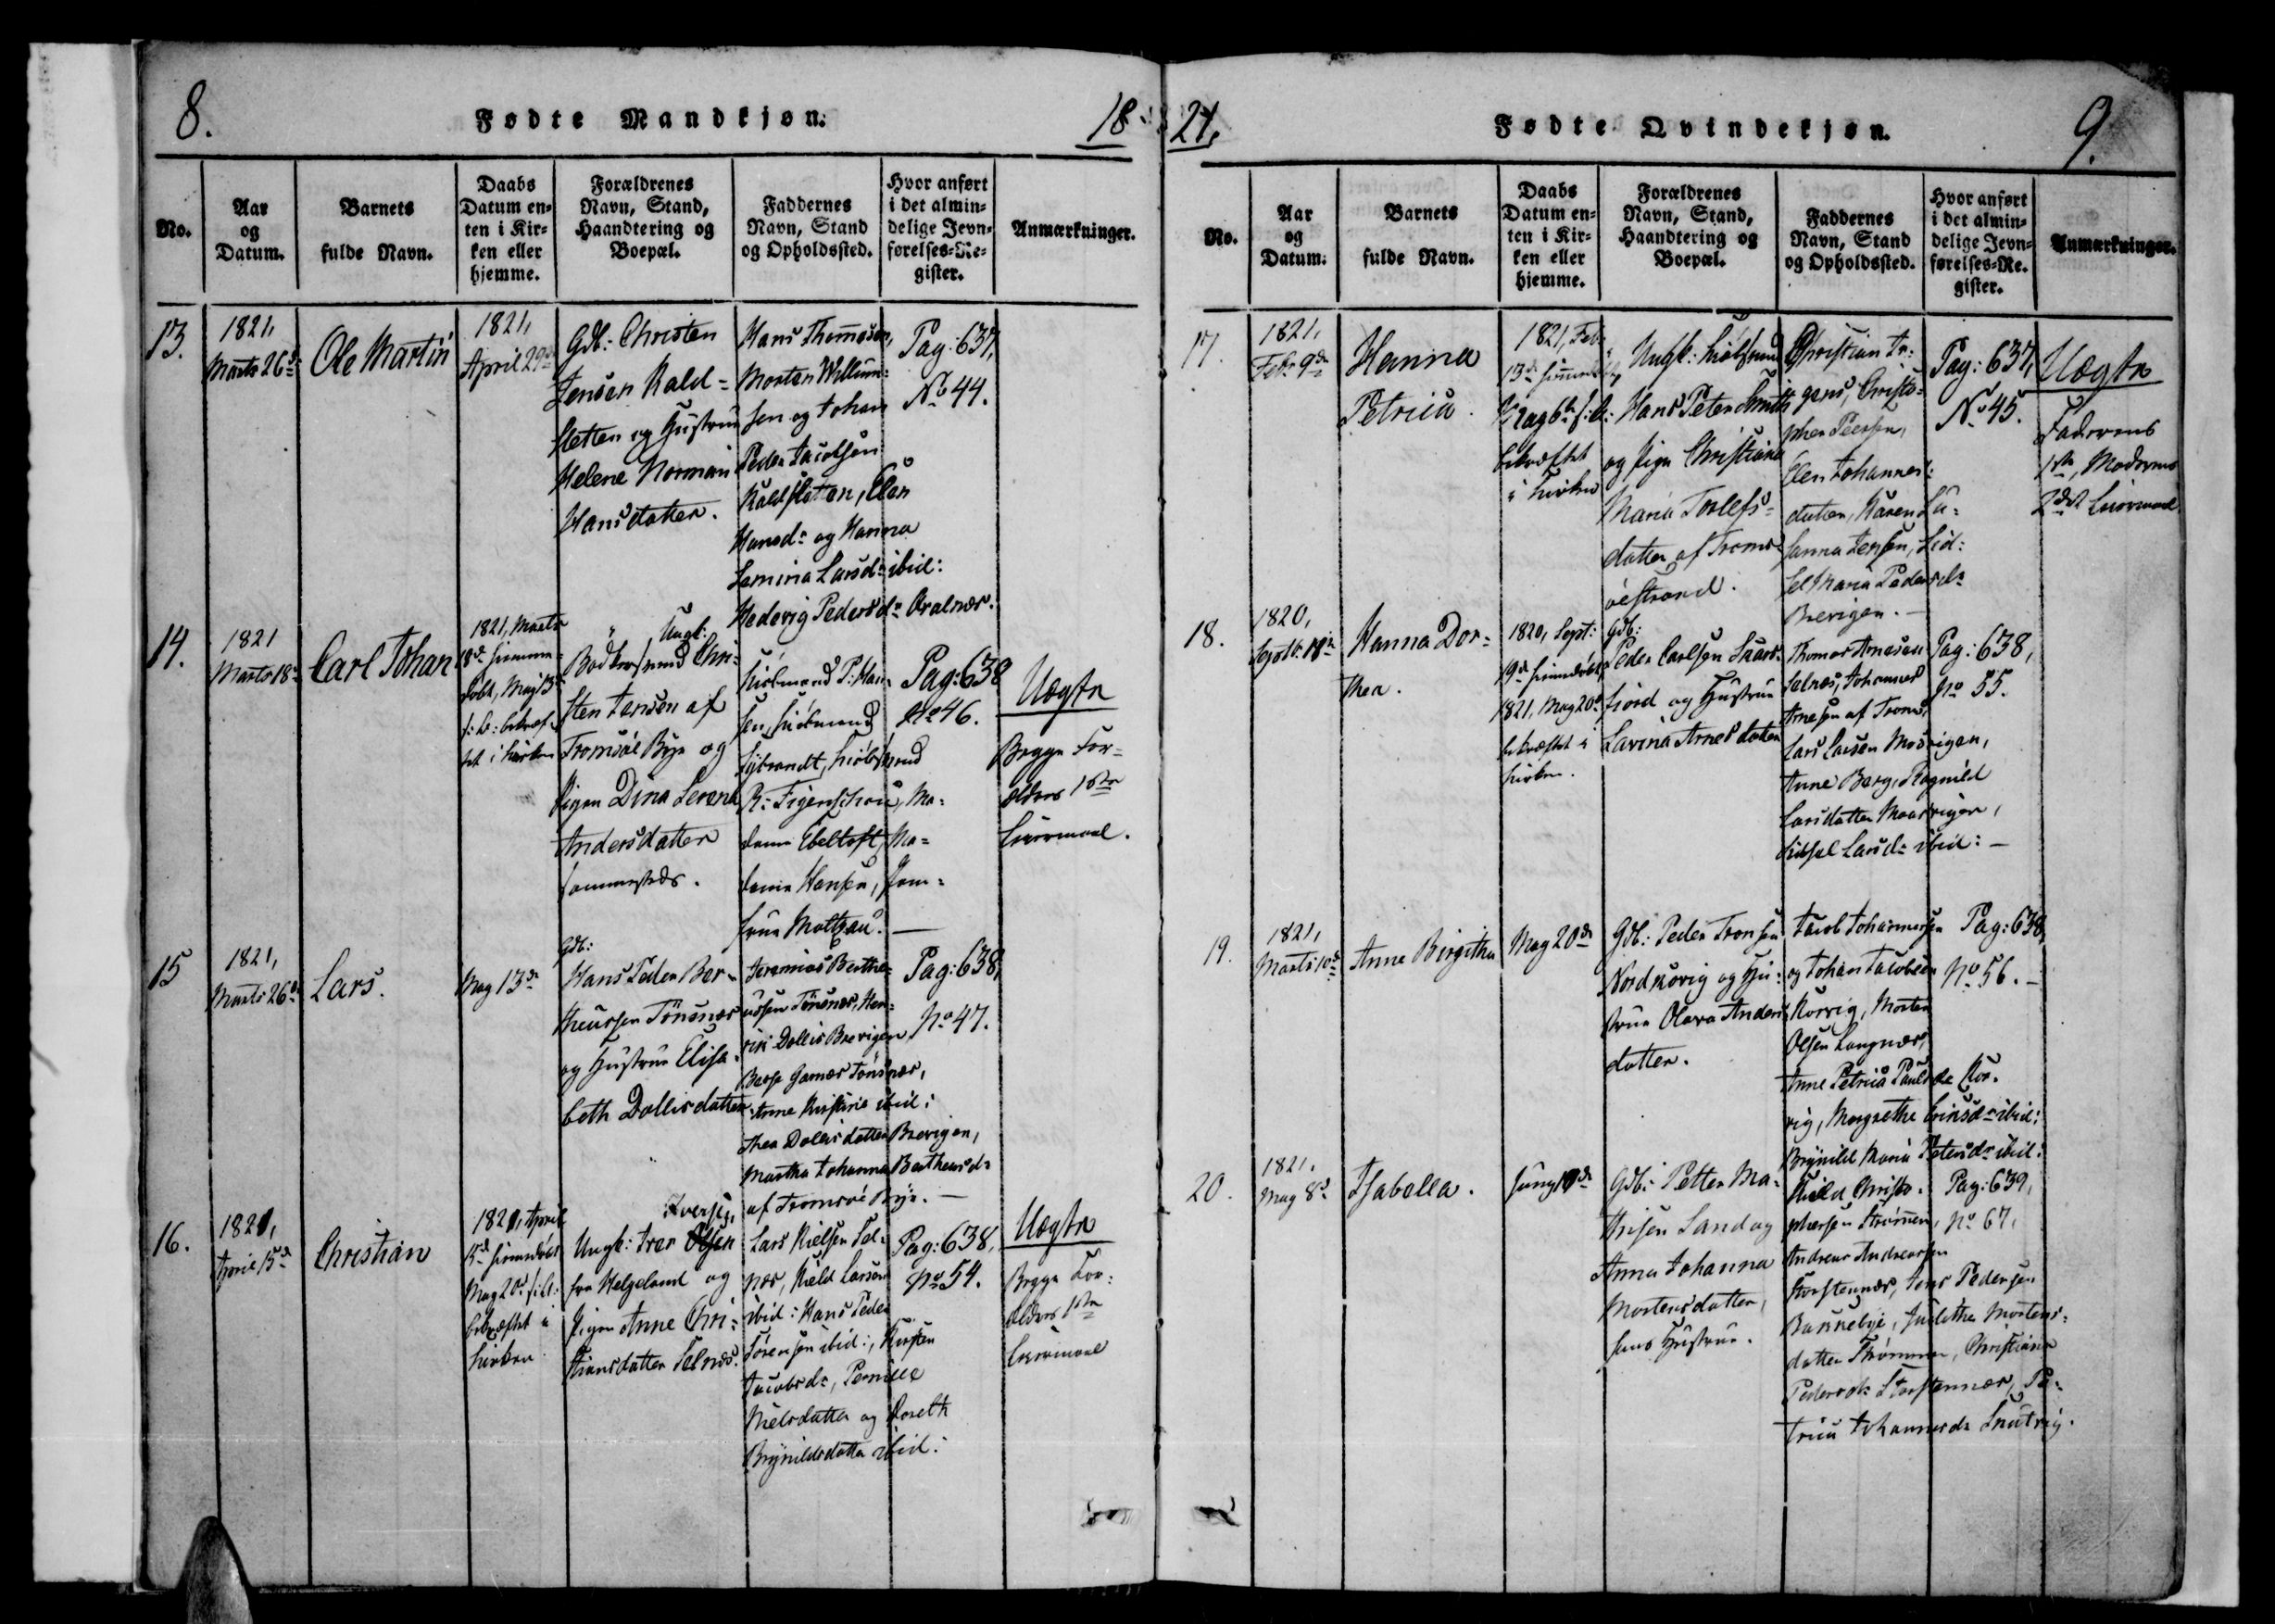 8.
Fødte Mandkjøn.
18
No.
Aar
og
Datum.
Barnets
fulde Navn.
Daabs
Datum en-
ten i Kir-
ken eller
hjemme.
Forældrenes
Navn, Stand,
Haandtering og
Boepæl.
Faddernes
Navn, Stand
og Opholdssted.
Hvor anført
i det almin-
delige Jevn-
førelses-Re-
gister.
Anmærkninger.
13.
1821,
Marts 26de
Ole Martin
1821,
April 29de
Gdb: Christen
Jensen Kald-
sletten og Hustrue
Helene Norman
Hansdatter.
Hans Thomæsen,
Morten Willum-
sen og Johan
Peder Jacobsen
Kaldsletten, Elen
Hansdr og Hanna
Lamina Larsdr ibid:
Hedevig Pedersdr
Pag: 637,
No 44.
14.
1821
Marts 18de
Carl Johan
1821, Marts
18de hiemme-
døbt, May 13de
s: A: bekræf-
tet i Kirken
Ungk:
Chri-
sten Jensen af
Tromsøe Bye og
Pigen Dina Lerena
Andersdatter
sammesteds.
Kiøbmand P: Han-
sen, Kiøbmand
Kiøbmand
R: Figenschou, Ma-
dame Ebeltoft, Ma-
dame Hansen, Jom-
frue Moltzau.
Pag: 638
No 46.
Uægte
Begge For-
ældres 1ste
Leiermaal.
15
1821,
Marts 26de
Lars.
May 13de
Gdb:
Hans Peder Ber-
theussen Tønsnes
og Hustrue Elisa-
beth Dollisdatter
Jeremias Berthe-
ussen Tønsnes, Hen-
rik Dollis Brevigen
Tønsnes,
Anne Kirstine ibid:
Thea Dollisdatter Brevigen,
Martha Johanna Bertheusdr
af Tromsøe Bye.
Pag: 638,
No 47.
16.
1821,
April 15de
Christian
1821, April
15de hiemdøbt
May 20de s: A:
bekræftet i
Kirken
Iversen,
Ungk: Iver Olsen
fra Helgeland og
Pigen Anne Chri-
stiansdatter Selnes.
Lars Nielsen Sel-
nes, Kield Larsen
ibid: Hans Peder
Sørensen ibid:, Kirsten
Jacobsdr, Pernille
Nielsdatter og
Brynildsdatter ibid:
Pag: 638,
No 54.
Uægte
Begge For-
ældres 1ste
Leiermaal
21.
Fødte Qvindekjøn.
9.
No.
Aar
og
Datum.
Barnets
fulde Navn.
Daabs
Datum en-
ten i Kir-
ken eller
hjemme.
Forældrenes
Navn, Stand,
Haandtering og
Boepæl.
Faddernes
Navn, Stand
og Opholdssted.
Hvor anført
i det almin-
delige Jevn-
førelses-Re-
gister.
Anmærkninger.
17.
1821,
Febr 9de
Hanna
Petricia.
1821, Feb:
13de hiemdøbt,
May 6te s: A:
bekræftet
i Kirken
Ungk: Kiøbsvend
Hans Peter Smith
og Pige Christiana
Maria Torlefs-
datter af Troms-
øestrand.
Christian Jr-
gens, Christo-
pher Peersen,
Elen Johannes-
datter, Karen Su-
sanna Jensen, Sid-
sel Maria Pedersdr
Brevigen.
Pag: 637,
No 45.
Uægte
Faderens
1ste, Moderens
2det Leiermaal
18.
1820,
Septbr 18de
Hanna Dor-
thea.
1820, Sept:
19de hiemdøbt,
1821, May 20de
bekræftet i
Kirken.
Gdb:
Peder Carlsen Skars-
fiord og Hustrue
Lavina Arnesdatter
Thomas Arnesen
Selnes, Johannes
Arnesen af Troms,
Lars Larsen Mosvigen,
Anne Berg, Ragnild
Larsdatter Maasvigen,
Sidsel Larsdr ibid:
Pag: 638,
No 55.
19.
1821,
Marts 10de
Anne Birgitha
May 20de
Gdb: Peder Tronsen
Nordkorvig og Hu-
strue Olava Anders-
datter.
Jacob Johannesen
og Johan Jacobsen
Korvig, Morten
Olsen Langnes,
Anne Petricia Paulsdr Kor-
vig, Margrethe Eriksdr ibid:
Brynild Maria Petersdr ibid:
Pag: 638,
No 56.
20.
1821.
May 8de
Isabella.
Gdb: Petter Ma-
thisen Sand og
Anna Johanna
Mortensdatter,
hans Hustrue.
Kield Christo-
phersen Strømmen,
Andreas Andreassen
Storstennes, Jens Pedersen
Bannebye, Mortens-
datter Strømmen, Christiana
Pedersdr Storstennes, Pe-
tricia Johannesdr
Pag: 639,
No 67.